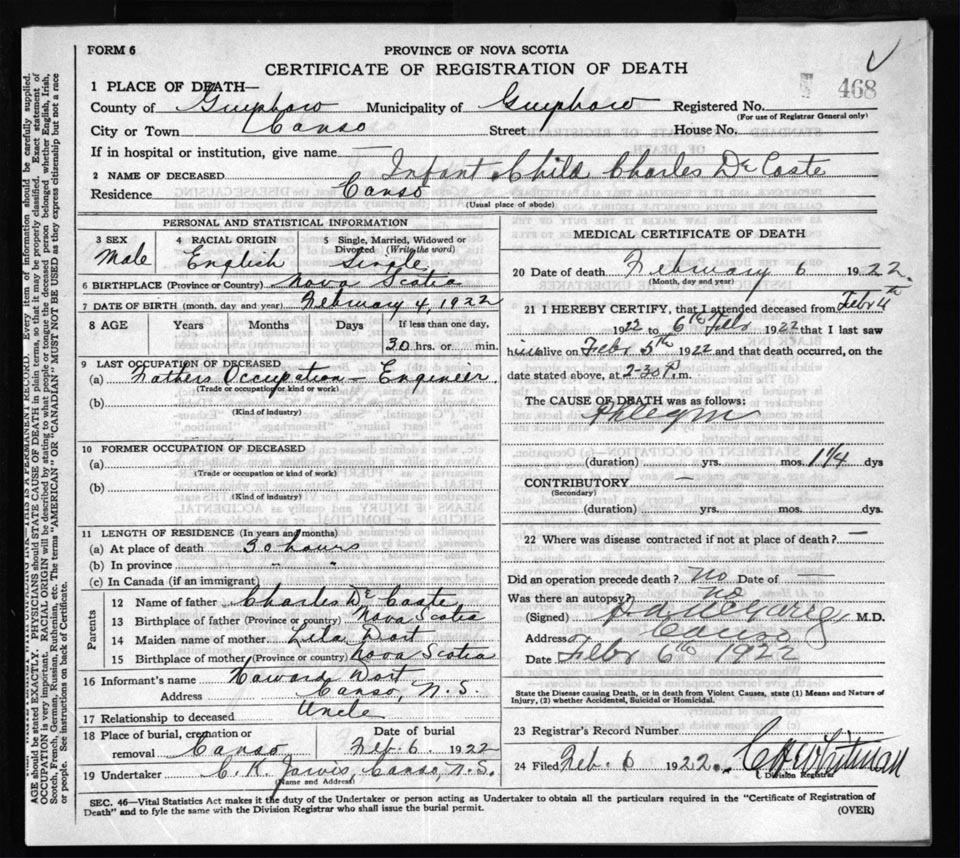 FORM 6
PROVINCE OF NOVA SCOTIA
CERTIFICATE OF REGISTRATION OF DEATH
468
1 PLACE OF DEATH—
County of Guysboro Municipality of Guysboro Registered No.
(For use of Registrar General only)
City or Town Canso Street House No.
If in hospital or institution, give name —
2 NAME OF DECEASED Infant Child Charles De Coste
Residence Canso
(Usual place of abode)
PERSONAL AND STATISTICAL INFORMATION
3 SEX 4 RACIAL ORIGIN 5 Single, Married, Widowed or Divorced (Write the word)
Male English Single
6 BIRTHPLACE (Province or Country) Nova Scotia
7 DATE OF BIRTH (month, day and year) February 4, 1922
8 AGE Years Months Days If less than one day,
30 hrs. or min.
9 LAST OCCUPATION OF DECEASED
(a) Fathers Occupation — Engineer.
(Trade or occupation or kind of work)
(b)
(Kind of industry)
10 FORMER OCCUPATION OF DECEASED
(a)
(Trade or occupation or kind of work)
(b)
(Kind of industry)
11 LENGTH OF RESIDENCE (In years and months)
(a) At place of death 30 hours
(b) In province " "
(c) In Canada (if an immigrant)
Parents
12 Name of father Charles De Coste
13 Birthplace of father (Province or country) Nova Scotia
14 Maiden name of mother Lila Dort
15 Birthplace of mother (Province or country) Nova Scotia
16 Informant's name Howard Dort
Address Canso, N.S.
17 Relationship to deceased Uncle
18 Place of burial, cremation or removal Canso Date of burial Feb. 6. 1922
19 Undertaker C. K. Jarvis, Canso, N.S.
(Name and Address)
MEDICAL CERTIFICATE OF DEATH
20 Date of death February 6 1922.
(Month, day and year)
21 I HEREBY CERTIFY, that I attended deceased from Febr 4th
1922 to 6th Febr 1922 that I last saw
him alive on Febr 5th 1922 and that death occurred, on
date stated above, at 2-30 P.m.
The CAUSE OF DEATH was as follows:
Phlegm
(duration) yrs. mos. 1 1/4 dys
CONTRIBUTORY —
(Secondary)
(duration) yrs. mos. dys.
22 Where was disease contracted if not at place of death? —
Did an operation precede death? No Date of —
Was there an autopsy? No
(Signed) M.D.
Address Canso
Date Febr 6th 1922
State the Disease causing Death, or in death from Violent Causes, state (1) Means and Nature of
Injury, (2) whether Accidental, Suicidal or Homicidal.
23 Registrar's Record Number
24 Filed Feb. 6 1922. C H Whitman
Division Registrar
SEC. 46—Vital Statistics Act makes it the duty of the Undertaker or person acting as Undertaker to obtain all the particulars required in the "Certificate of Registration of
Death" and to fyle the same with the Division Registrar who shall issue the burial permit. (OVER)
AGE should be stated EXACTLY. PHYSICIANS should STATE CAUSE OF DEATH in plain terms, so that it may be properly classified. Exact statement of
OCCUPATION is very important. RACIAL ORIGIN will be described by stating to what people or tongue the deceased person belonged whether English, Irish,
Scotch, French, German, Russian, Ruthenian, etc. The terms "AMERICAN" OR "CANADIAN" MUST NOT BE USED as they express citizenship but not a race
or people. See instructions on back of Certificate.